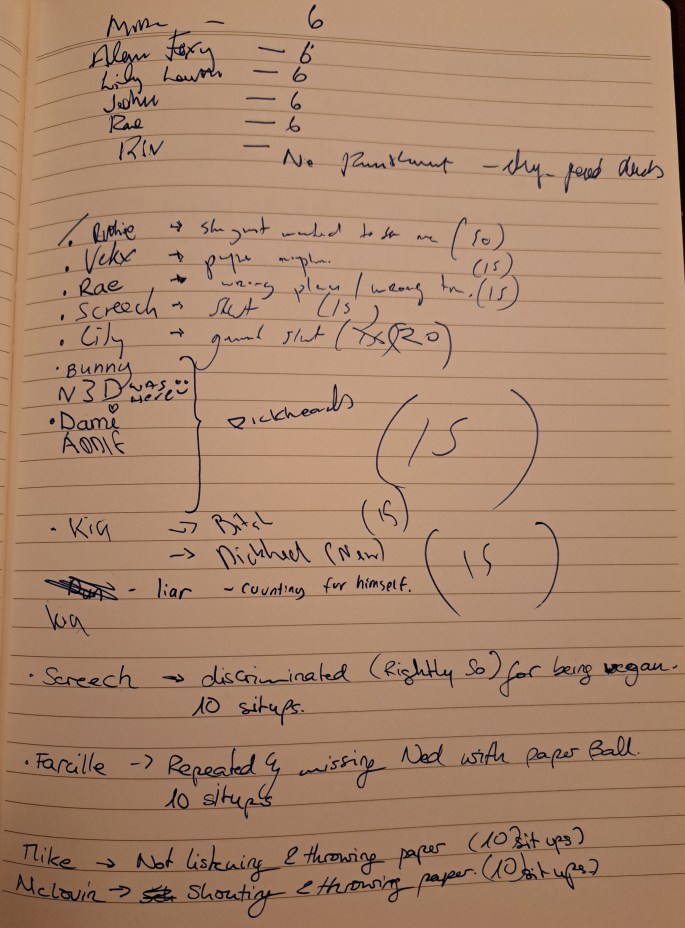 — 6
Alan Foxy — 6
Lily — 6
— 6
Rae — 6
RIV — No Punishment — good
Ruthie → she just wanted to me (50)
Vekx → (15)
Rae → wrong place / wrong (15)
Screech → slut (15)
Lily → slut (20)
Bunny
N3D WAS HERE
Dami
Dickheads (15)
Kia → Bitch (15)
→ Dickhead (New) (15)
- liar - counting for himself.
Kia
Screech → discriminated (Rightly So) for being vegan.
10 situps.
Farcille → Repeated missing Ned with paper Ball.
10 situps
Mike → Not listening & throwing paper (10 sit ups)
Mclovin → Shouting & throwing paper. (10 sit ups)